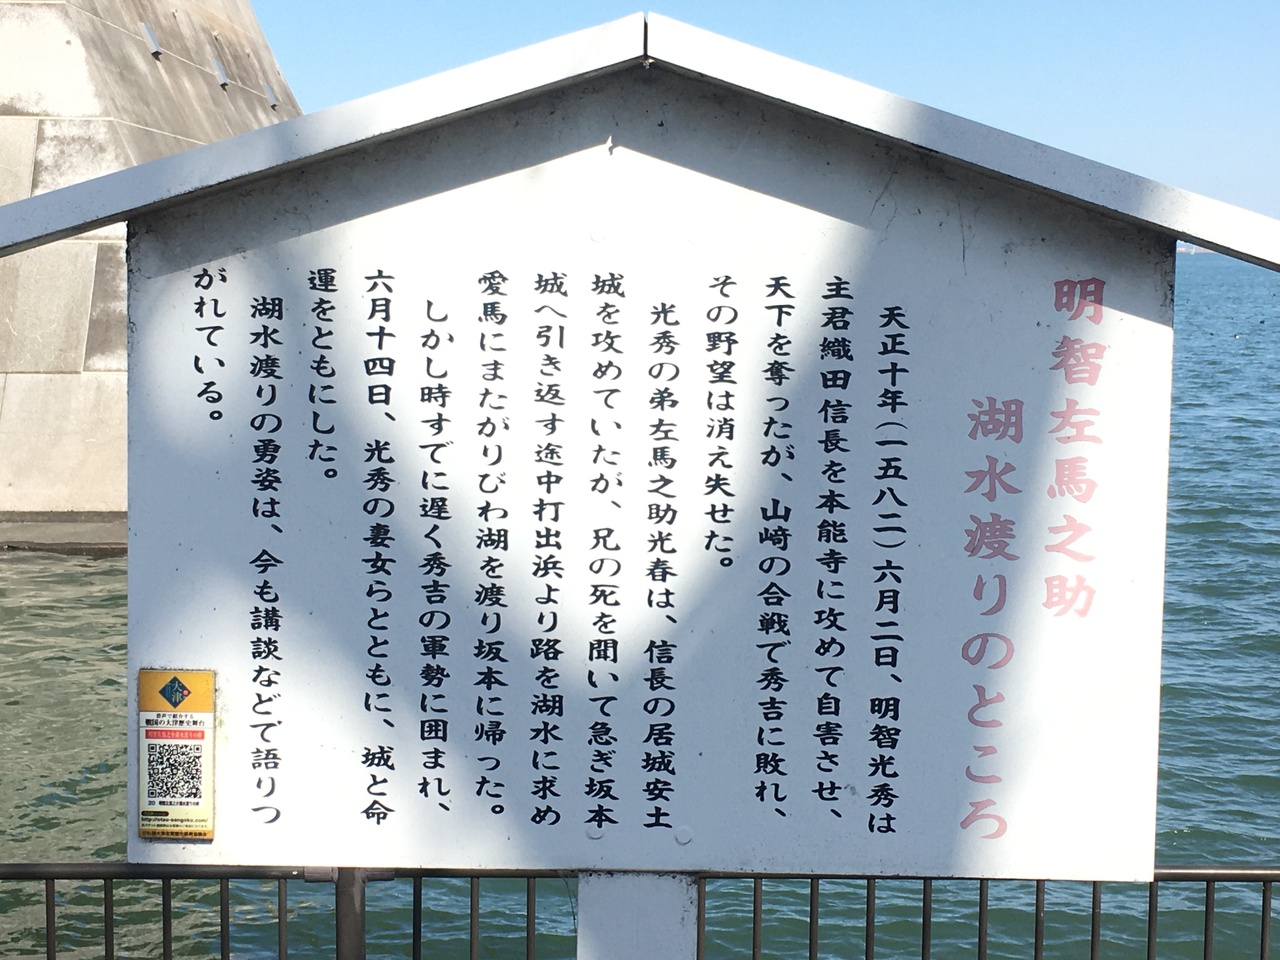 明智左馬之助
湖水渡りのところ
天正十年(一五八二)六月二日、明智光秀は
主君織田信長を本能寺に攻めて自害させ、
天下を奪ったが、山﨑の合戦で秀吉に敗れ、
その野望は消え失せた。
光秀の弟左馬之助光春は、信長の居城安土
城を攻めていたが、兄の死を聞いて急ぎ坂本
城へ引き返す途中打出浜より路を湖水に求め
愛馬にまたがりびわ湖を渡り坂本に帰った。
しかし時すでに遅く秀吉の軍勢に囲まれ、
六月十四日、光秀の妻女らとともに、城と命
運をともにした。
湖水渡りの勇姿は、今も講談などで語りつ
がれている。
大津
音声で紹介する
戦国の大津歴史舞台
http://otsu-sengoku.com/